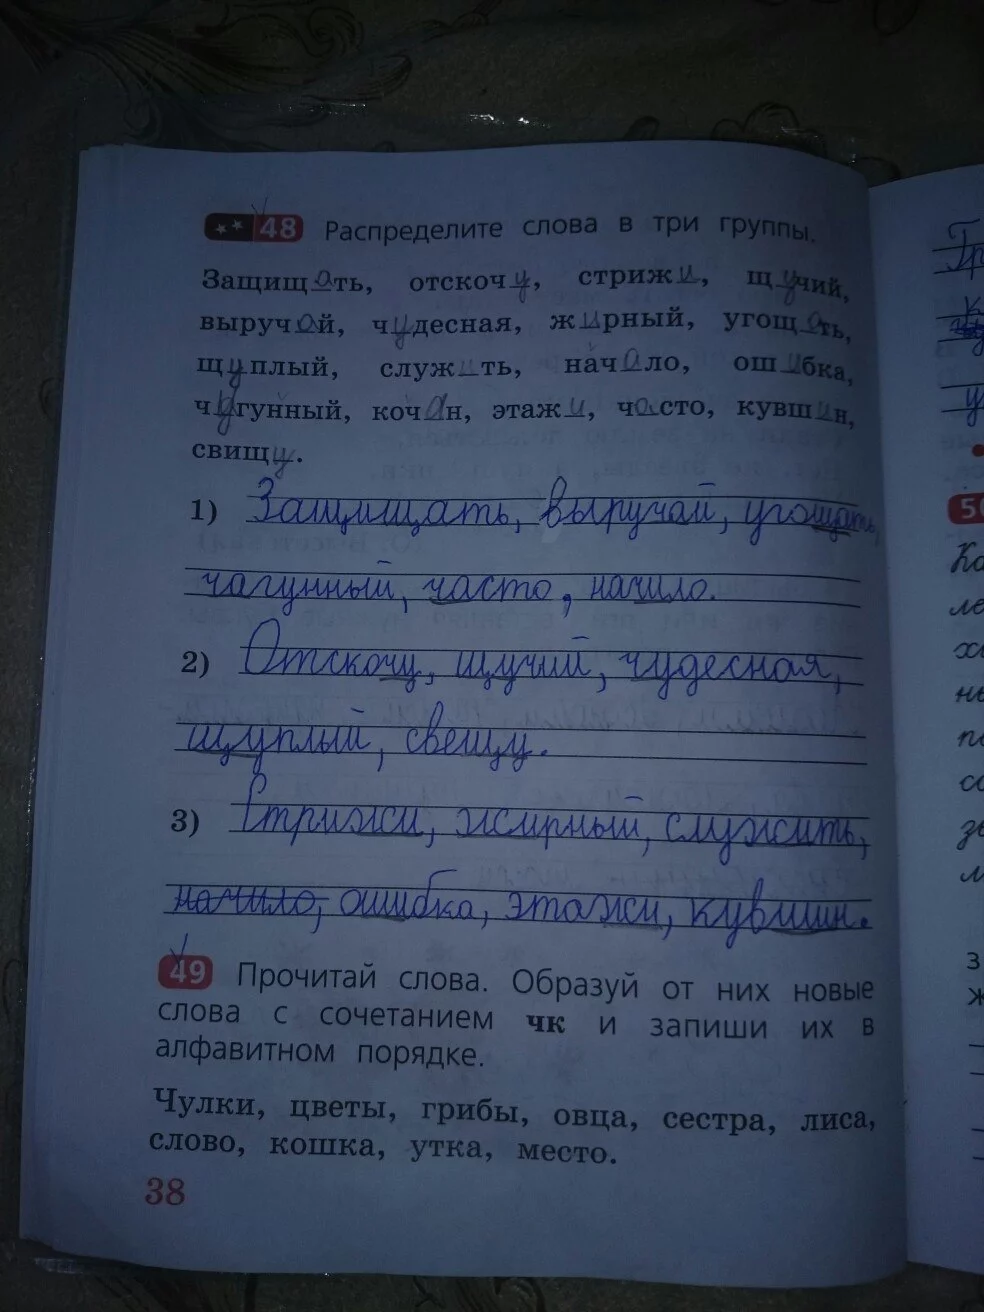 48 Распределите слова в три группы.
Защищать, отскочу, стрижи, щучий,
выручай, чудесная, жирный, угощать,
щуплый, служить, начало, ошибка,
чугунный, кочан, этажи, часто, кувшин,
свищу.
1) Защищать, выручай, угощать,
чагунный, часто, начило.
2) Отскочу, щучий, чудесная,
щуплый, свещу.
3) Стрижи, жирный, служить,
начило, ошибка, этажи, кувшин.
49 Прочитай слова. Образуй от них новые
слова с сочетанием чк и запиши их в
алфавитном порядке.
Чулки, цветы, грибы, овца, сестра, лиса,
слово, кошка, утка, место.
38